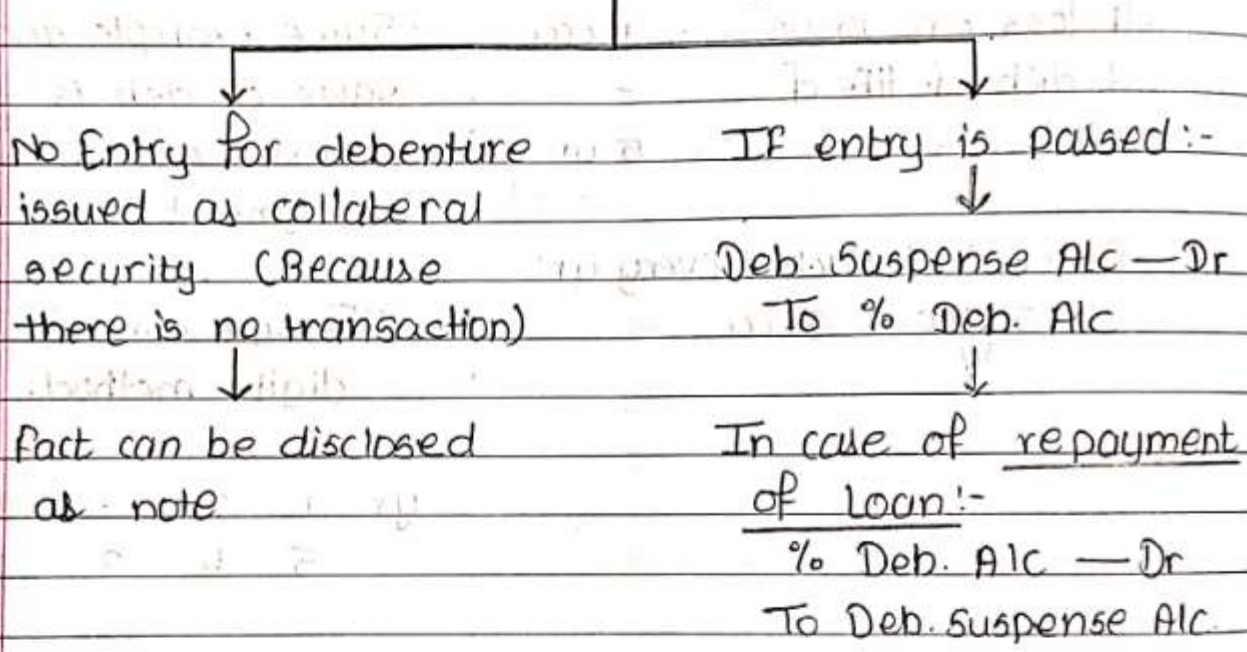 No Entry for debenture
issued as collateral
security (Because
there is no transaction)
fact can be disclosed
as note
IF entry is passed:-
Deb. Suspense A/c — Dr
To % Deb. A/c
In case of repayment
of Loan:-
% Deb. A/c — Dr
To Deb. Suspense A/c